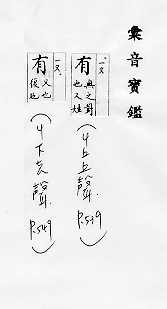 彙音寶鑑
一×,
有
無之對
也又姓
(4上上聲.
P.549)
一×,
有
又也
復也
(4下去聲.
P.549)